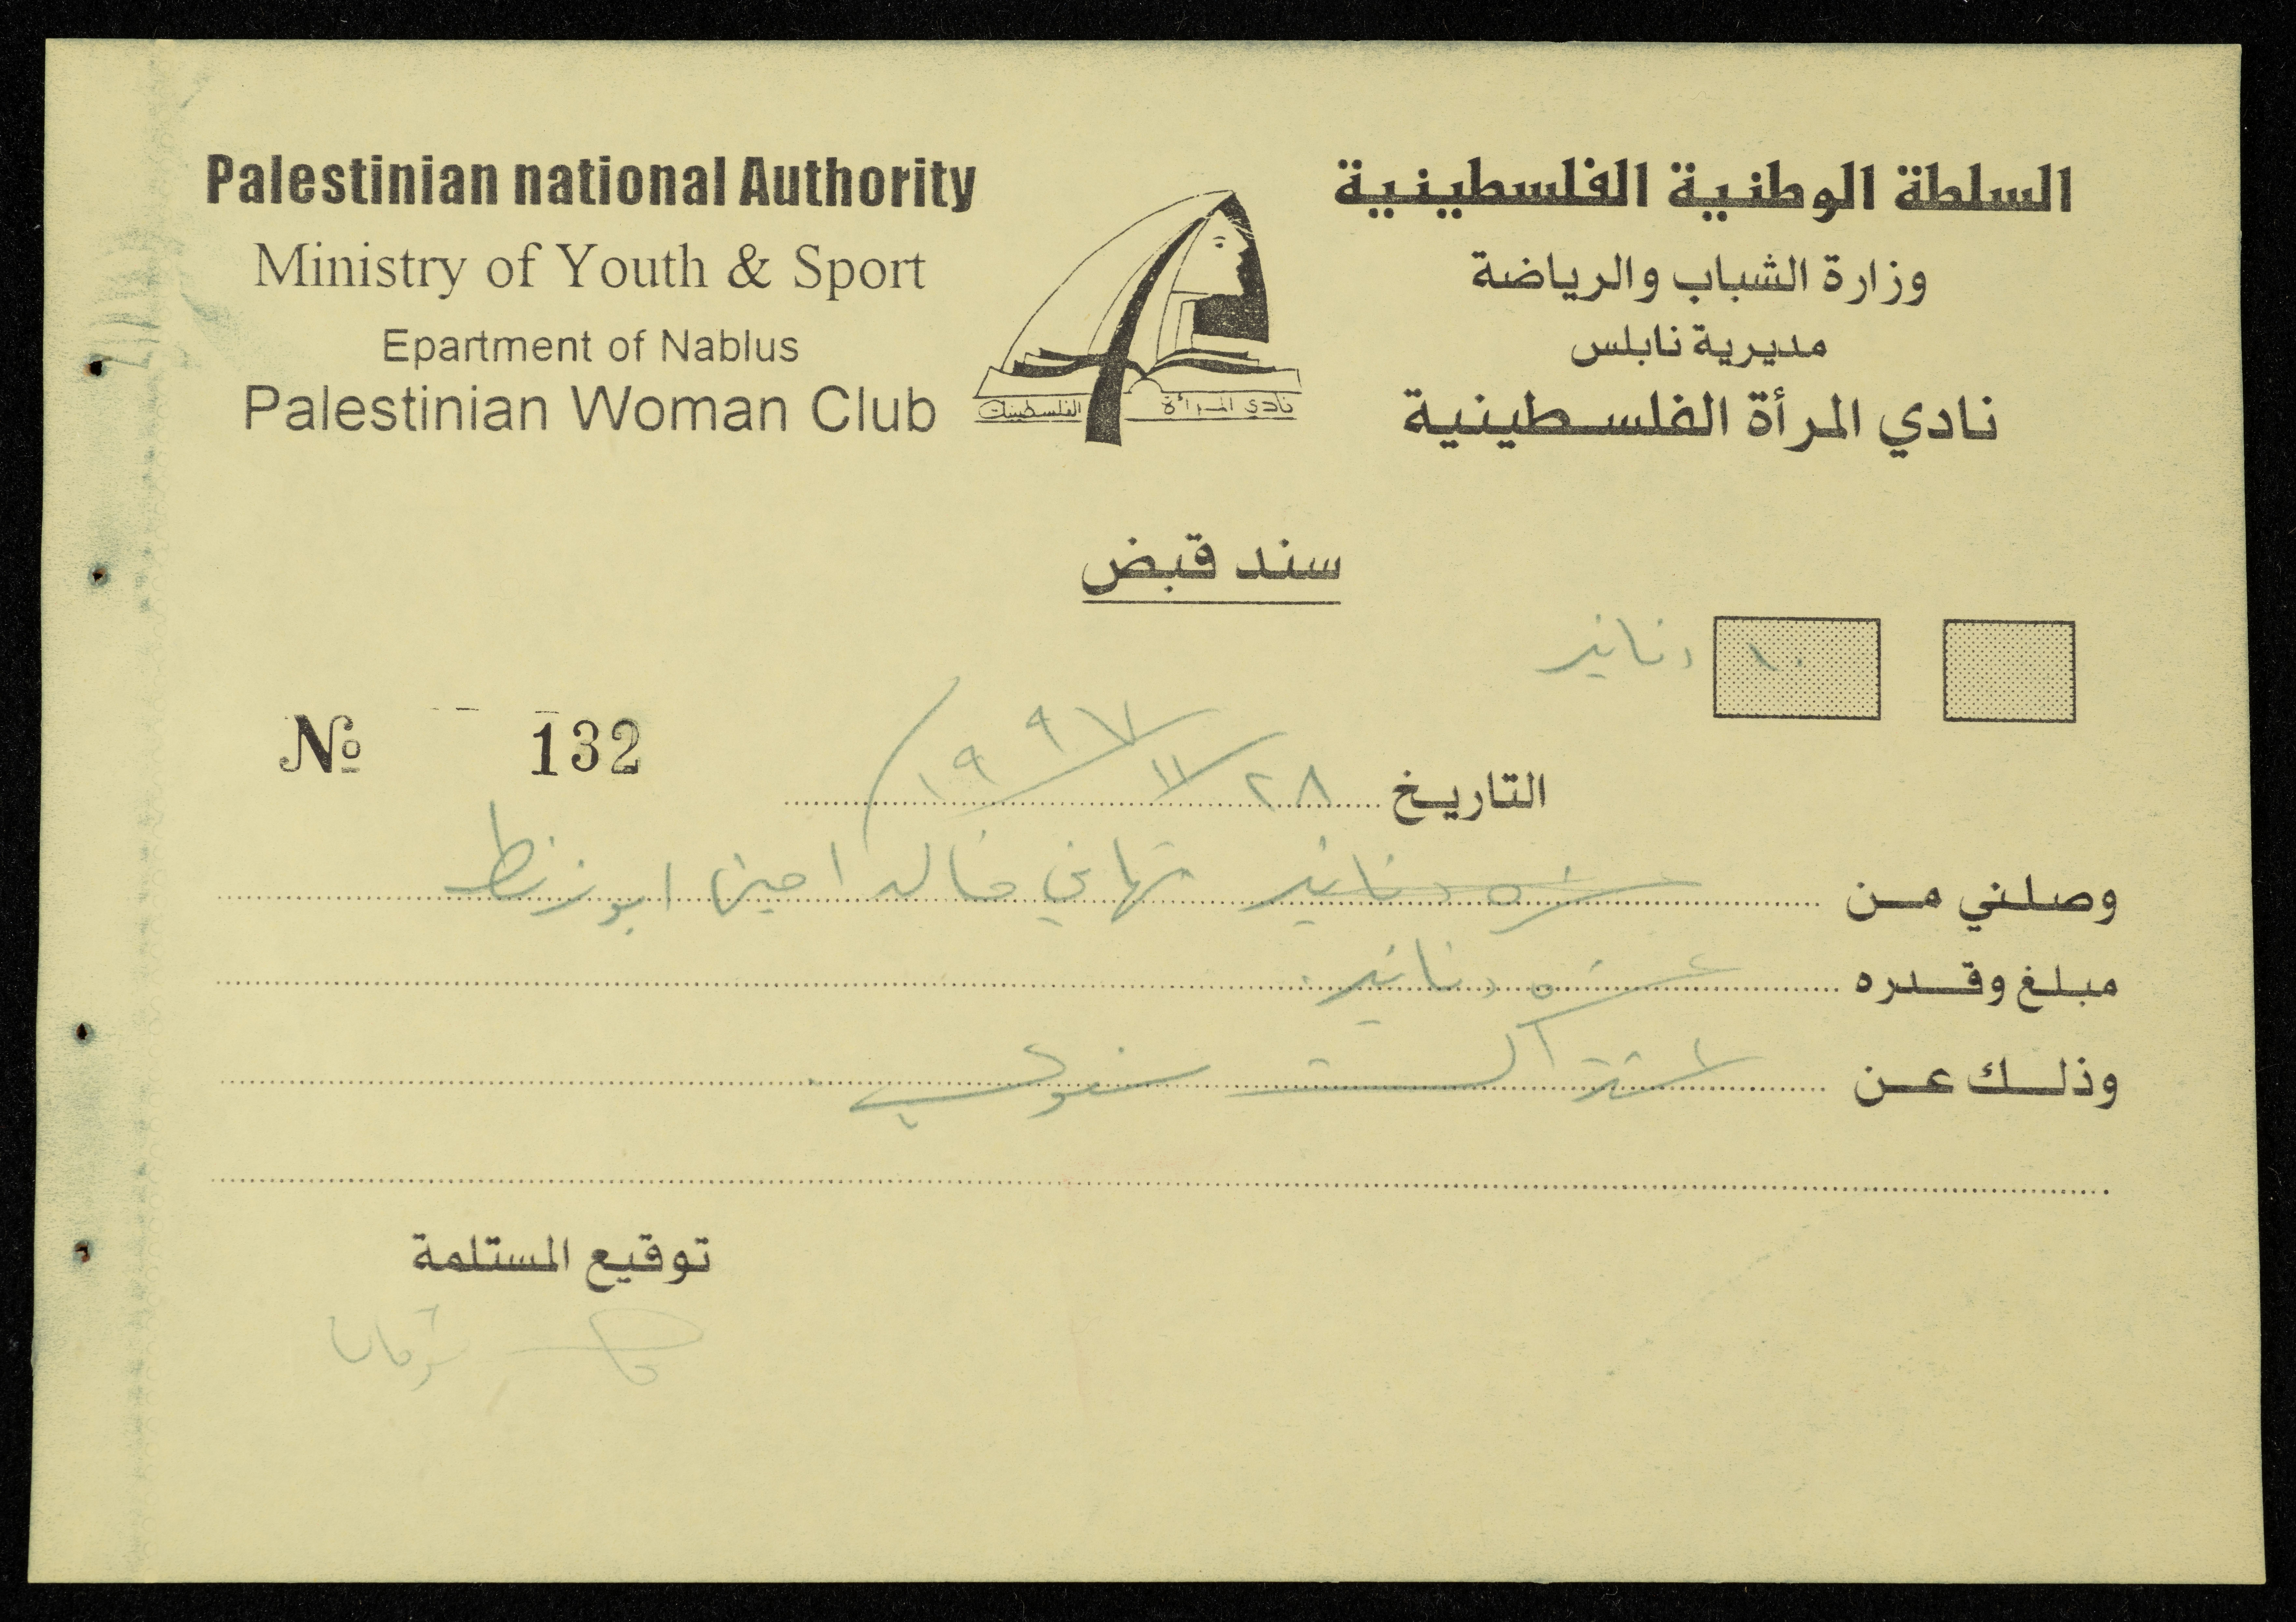 السلطة الوطنية الفلسطينية
وزارة الشباب والرياضة
مديرية نابلس
نادي المرأة الفلسطينية
Palestinian national Authority
Ministry of Youth & Sport
Epartment of Nablus
Palestinian Woman Club
نادي المرأة الفلسطينية
سند قبض
١٠ دنانير
№ 132
التاريخ ٢٨/١١/١٩٩٧
وصلني من عشرة دنانير تهاني خالد امين ابو زنط
مبلغ وقدره عشرة دنانير.
وذلك عن اشتراك سنوي
توقيع المستلمة